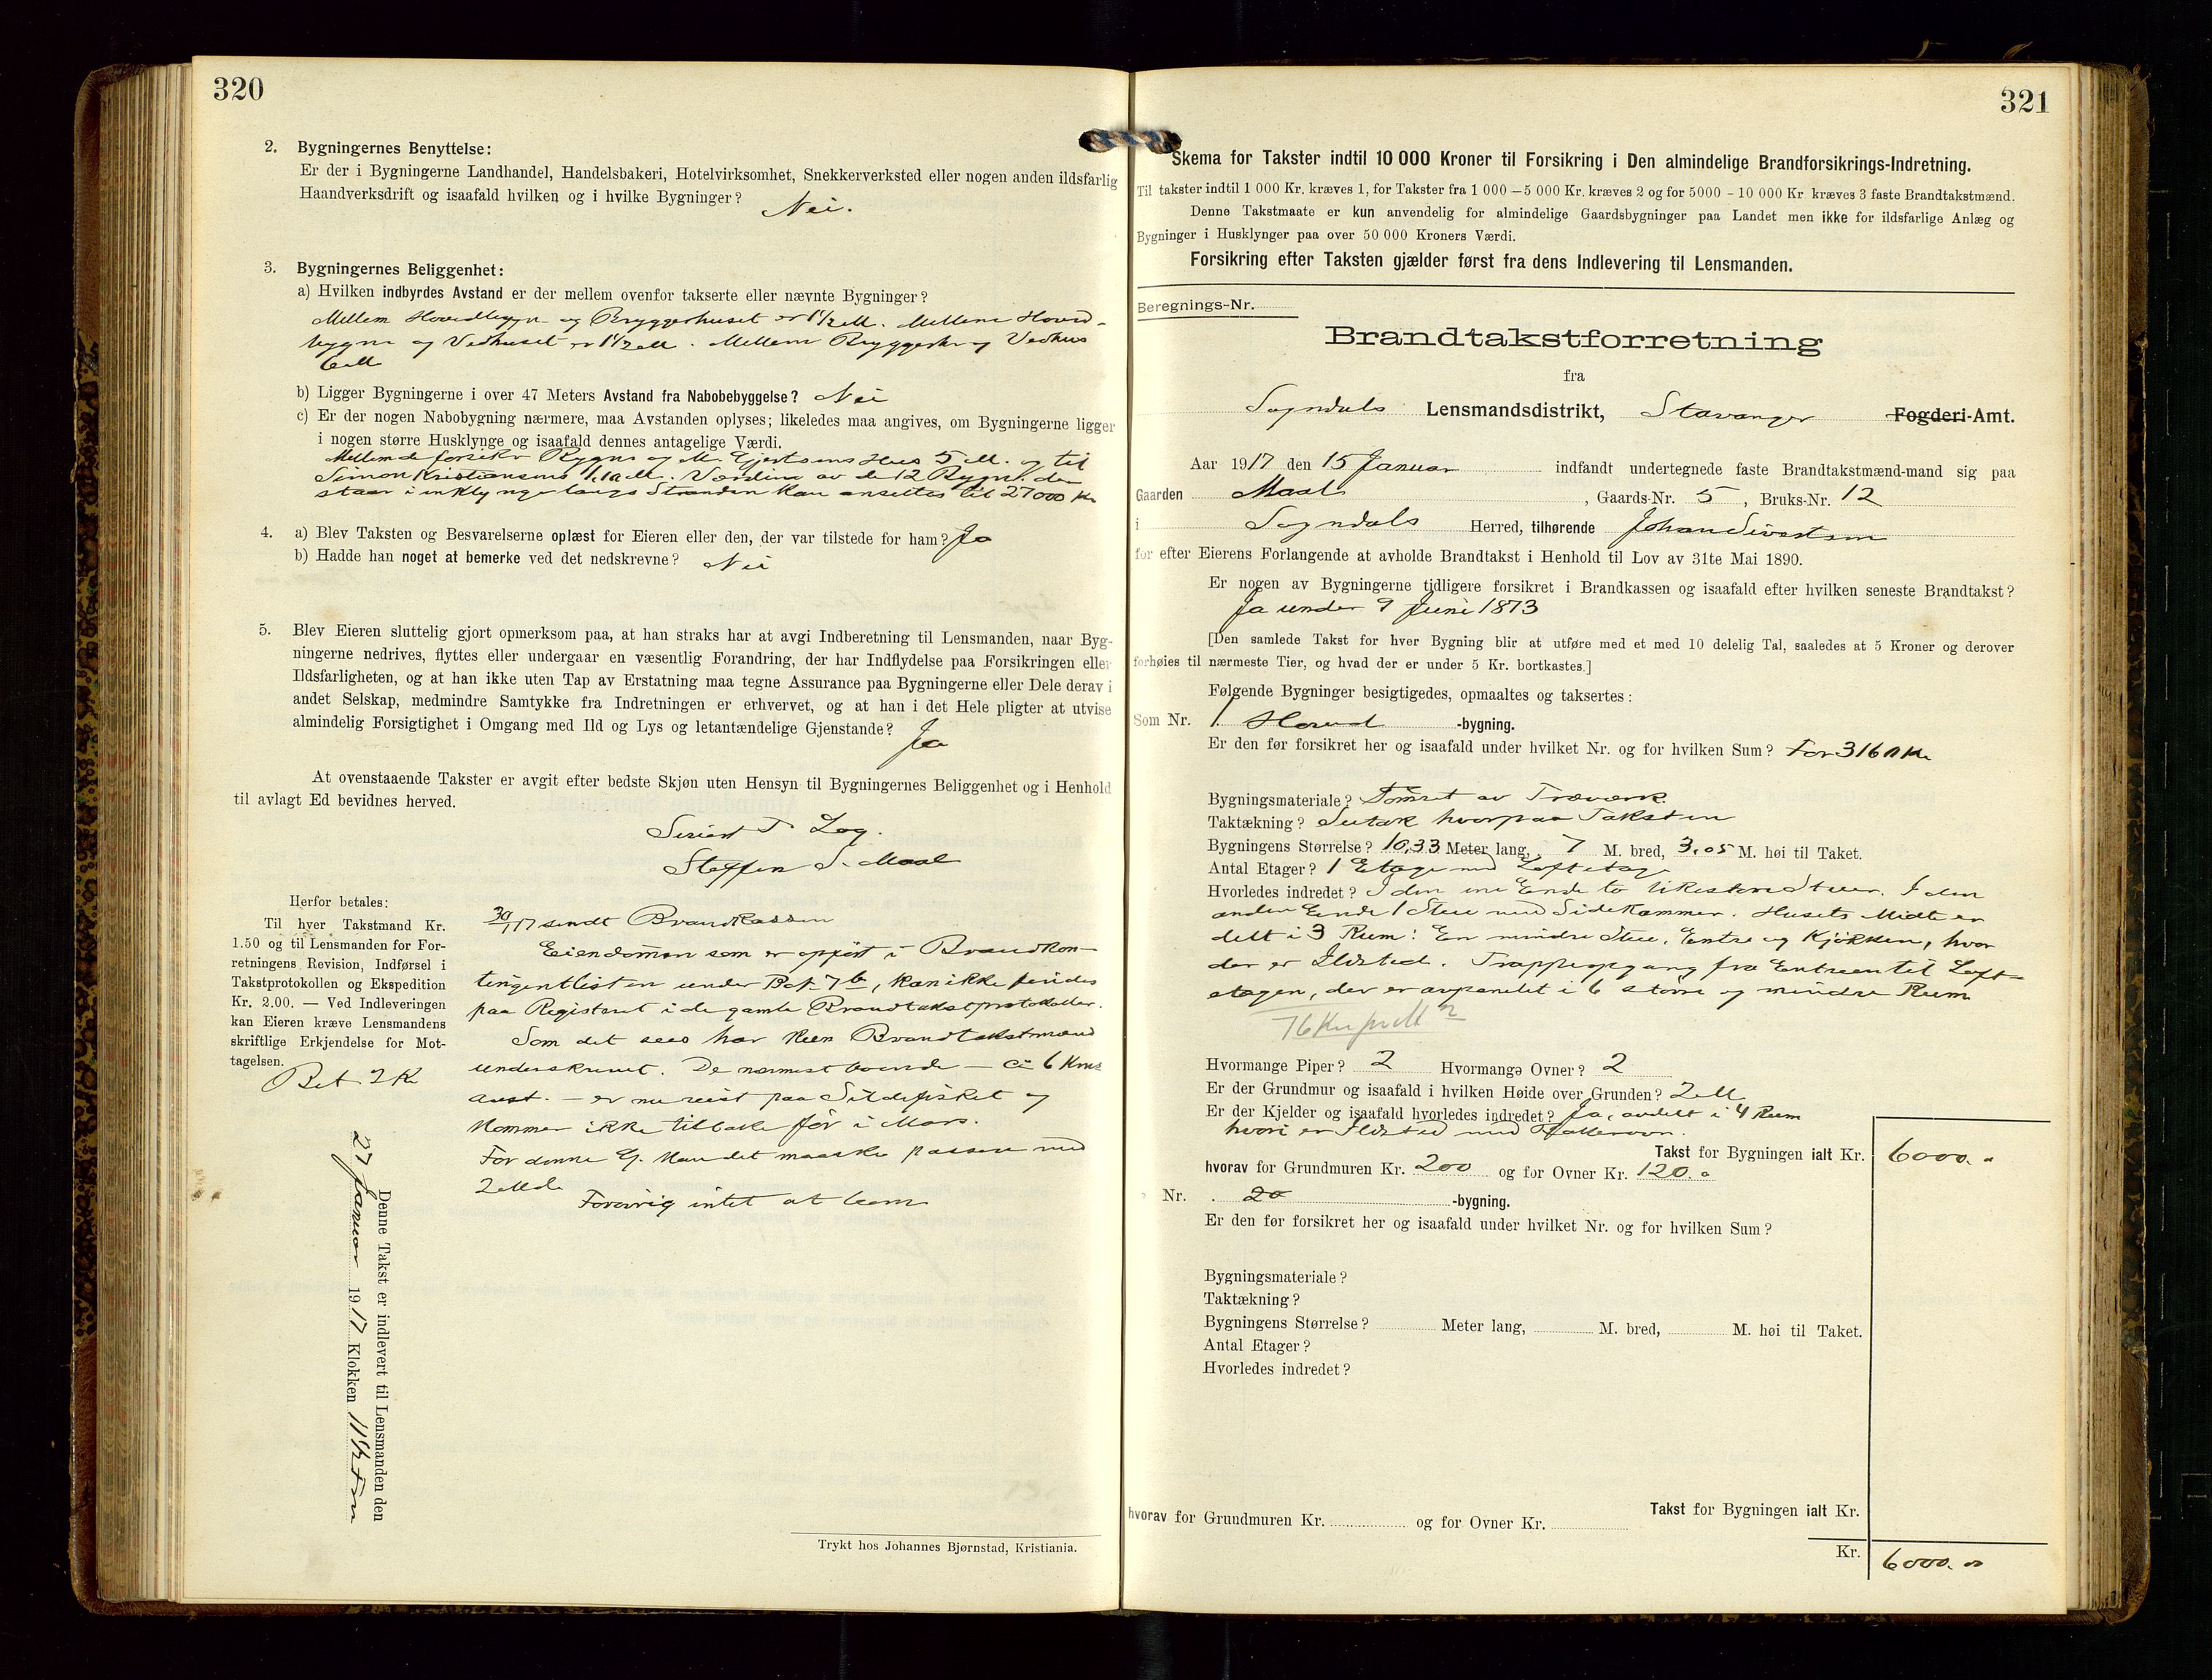 320
2. Bygningernes Benyttelse:
Er der i Bygningerne Landhandel, Handelsbakeri, Hotelvirksomhet, Snekkerverksted eller nogen anden ildsfarlig
Haandverksdrift og isaafald hvilken og i hvilke Bygninger? Nei.
3. Bygningernes Beliggenhet:
a) Hvilken indbyrdes Avstand er der mellem ovenfor takserte eller nævnte Bygninger?
Mellem Hovedbygn og Bryggerhuset er 1½ M. Mellem Hoved-
bygn og Vedhuset er 1½ M. Mellem Bryggerh og Vedhus
6 M
b) Ligger Bygningerne i over 47 Meters Avstand fra Nabobebyggelse? Nei
c) Er der nogen Nabobygning nærmere, maa Avstanden oplyses; likeledes maa angives, om Bygningerne ligger
i nogen større Husklynge og isaafald dennes antagelige Værdi.
Mellem de forsikr Bygns og M. Gjertsens Hus 5 M. og til
Simon Kristiansens M. Værdien av de 12 Bygn. der
staar i en klynge langs Stranden kan ansettes til 27000 Kr
4. a) Blev Taksten og Besvarelserne oplæst for Eieren eller den, der var tilstede for ham? Ja
b) Hadde han noget at bemerke ved det nedskrevne? Nei
5. Blev Eieren sluttelig gjort opmerksom paa, at han straks har at avgi Indberetning til Lensmanden, naar Byg-
ningerne nedrives, flyttes eller undergaar en væsentlig Forandring, der har Indflydelse paa Forsikringen eller
Ildsfarligheten, og at han ikke uten Tap av Erstatning maa tegne Assurance paa Bygningerne eller Dele derav i
andet Selskap, medmindre Samtykke fra Indretningen er erhvervet, og at han i det Hele pligter at utvise
almindelig Forsigtighet i Omgang med Ild og Lys og letantændelige Gjenstande? Ja
At ovenstaaende Takster er avgit efter bedste Skjøn uten Hensyn til Bygningernes Beliggenhet og i Henhold
til avlagt Ed bevidnes herved.
Sivert T. Log.
Steffen S. Maal
Herfor betales:
Til hver Takstmand Kr.
1.50 og til Lensmanden for For-
retningens Revision, Indførsel i
Takstprotokollen og Ekspedition
Kr. 2.00. — Ved Indleveringen
kan Eieren kræve Lensmandens
skriftlige Erkjendelse for Mot-
tagelsen.
Bet 2 Kr
30/1 17 sendt Brandkassen
Eiendommen som er opført i Brandkon-
tingentlisten under Bet. 7 b, kan ikke findes
paa Registeret i de gamle Brandtakstprotokoller.
Som det sees har kun Brandtakstmænd
underskrevet. De nærmest boende — ca 6 Kms
avst. — er nu reist paa Sildefisket og
kommer ikke tilbake før i Mars.
For denne G. kan det maaske passere med
2 Md
Forøvrig intet at bem
Denne Takst er indlevert til Lensmanden den
27 Januar 1917 Klokken 11½ Fm
Trykt hos Johannes Bjørnstad, Kristiania.
321
Skema for Takster indtil 10 000 Kroner til Forsikring i Den almindelige Brandforsikrings-Indretning.
Til takster indtil 1 000 Kr. kræves 1, for Takster fra 1 000—5 000 Kr. kræves 2 og for 5000 - 10 000 Kr kræves 3 faste Brandtakstmænd.
Denne Takstmaate er kun anvendelig for almindelige Gaardsbygninger paa Landet men ikke for ildsfarlige Anlæg og
Bygninger i Husklynger paa over 50 000 Kroners Værdi.
Forsikring efter Taksten gjælder først fra dens Indlevering til Lensmanden.
Beregnings-Nr.
Brandtakstforretning
fra
Sogndals Lensmandsdistrikt, Stavanger Fogderi-Amt.
Aar 1917 den 15 Januar indfandt undertegnede faste Brandtakstmænd-mand sig paa
Gaarden Maal, Gaards-Nr. 5, Bruks-Nr. 12
i Sogndals Herred, tilhørende Johan Sivertsen
for efter Eierens Forlangende at avholde Brandtakst i Henhold til Lov av 31te Mai 1890.
Er nogen av Bygningerne tidligere forsikret i Brandkassen og isaafald efter hvilken seneste Brandtakst?
Ja under 9 Juni 1873
[Den samlede Takst for hver Bygning blir at utføre med et med 10 delelig Tal, saaledes at 5 Kroner og derover
forhøies til nærmeste Tier, og hvad der er under 5 Kr. bortkastes.]
Følgende Bygninger besigtigedes, opmaaltes og taksertes:
Som Nr. 1. Hoved -bygning.
Er den før forsikret her og isaafald under hvilket Nr. og for hvilken Sum? For 3160 Kr
Bygningsmateriale? Tømret av Træværk.
Taktækning? Sutak hvorpaa Taksten
Bygningens Størrelse? 10,33 Meter lang, 7 M. bred, 3.05 M. høi til Taket.
Antal Etager? 1 Etage med Loftetage
Hvorledes indredet? I den ene Ende to likestore Stuer. I den
anden Ende 1 Stue med Sidekammer. Husets Midte er
delt i 3 Rum: En mindre Stue, Entre og Kjøkken, hvor
der er Ildsted. Trappeopgang fra Entreen til Loft-
etagen, der er avpanelet i 6 større og mindre Rum
76 Kr pr M²
Hvormange Piper? 2 Hvormange Ovner? 2
Er der Grundmur og isaafald i hvilken Høide over Grunden? 2 M
Er der Kjelder og isaafald hvorledes indredet? Ja, avdelt i 4 Rum
hvori er Ildsted med
Takst for Bygningen ialt Kr. 6000. "
hvorav for Grundmuren Kr. 200 og for Ovner Kr. 120. "
Nr. -bygning.
Er den før forsikret her og isaafald under hvilket Nr. og for hvilken Sum?
Bygningsmateriale?
Taktækning?
Bygningens Størrelse? Meter lang, M. bred, M. høi til Taket.
Antal Etager?
Hvorledes indredet?
Takst for Bygningen ialt Kr.
hvorav for Grundmuren Kr. og for Ovner Kr.
Kr. 6000. "